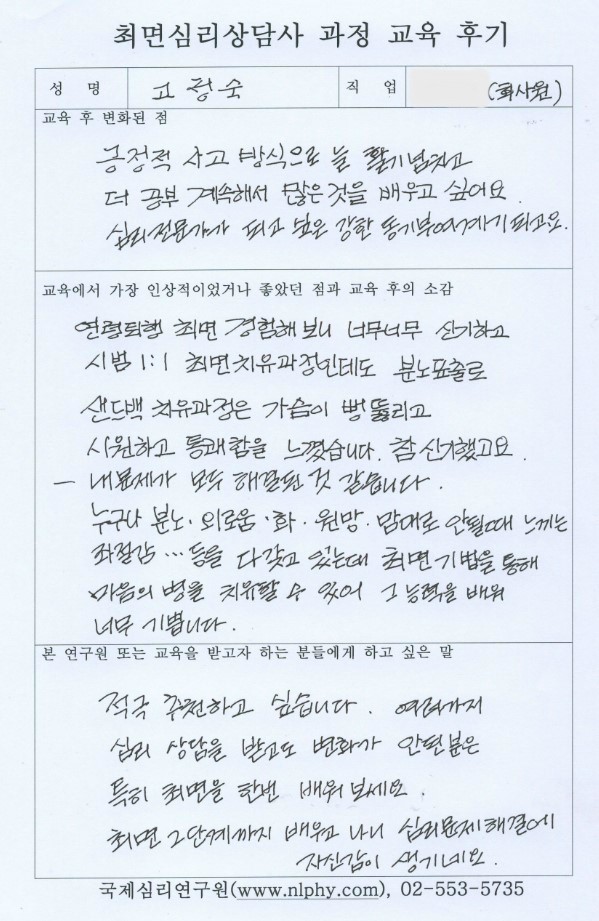 최면심리상담사 과정 교육 후기
성 명 고정숙 직 업 (회사원)
교육 후 변화된 점
긍정적 사고 방식으로 늘 활기넘치고
더 공부 계속해서 많은것을 배우고 싶어요.
심리전문가가 되고 싶은 강한 동기부여계기 되고요.
교육에서 가장 인상적이었거나 좋았던 점과 교육 후의 소감
연령퇴행 최면 경험해보니 너무너무 신기하고
시범 1:1 최면치유과정인데도 분노표출로
샌드백 치유과정은 가슴이 뻥뚫리고
시원하고 통쾌함을 느꼈습니다. 참 신기했고요.
– 내문제가 모두 해결된 것 같습니다.
누구나 분노·외로움·화·원망·맘대로 안될때 느끼는
좌절감 … 등을 다갖고 있는데 최면기법을 통해
마음의 병을 치유할 수 있어 그 능력을 배워
너무 기쁩니다.
본 연구원 또는 교육을 받고자 하는 분들에게 하고 싶은 말
적극 추천하고 싶습니다. 여러가지
심리 상담을 받고도 변화가 안된분은
특히 최면을 한번 배워보세요.
최면 2단계까지 배우고 나니 심리문제해결에
자신감이 생기네요.
국제심리연구원(www.nlphy.com), 02-553-5735